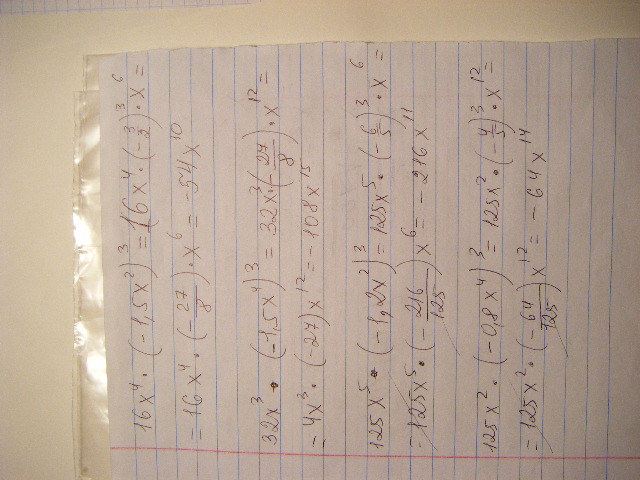 16x⁴ · (-1,5x²)³ = 16x⁴ · (-3/2)³ · x⁶ =
= 16x⁴ · (-27/8) · x⁶ = -54x¹⁰
32x³ · (-1,5x⁴)³ = 32x³ · (-27/8) · x¹² =
= 4x³ · (-27)x¹² = -108x¹⁵
125x⁵ · (-1,2x²)³ = 125x⁵ · (-6/5)³ · x⁶ =
= 125x⁵ · (-216/125)x⁶ = -216x¹¹
125x² · (-0,8x⁴)³ = 125x² · (-4/5)³ · x¹² =
= 125x² · (-64/125)x¹² = -64x¹⁴